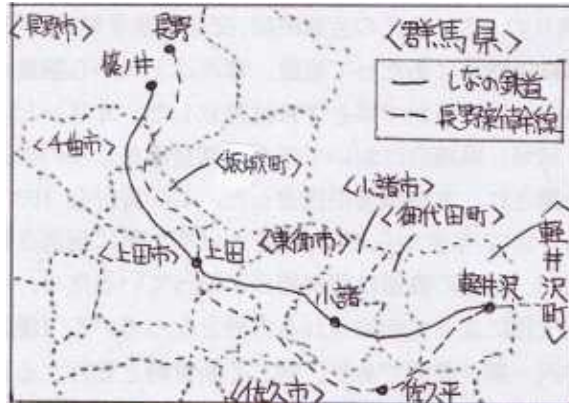 <長野市>
長野
篠ノ井
<群馬県>
しなの鉄道
長野新幹線
<千曲市>
<坂城町>
<小諸市>
<御代田町>
<東御市>
<上田市>
上田
軽井沢町
軽井沢
小諸
<佐久市>
佐久平